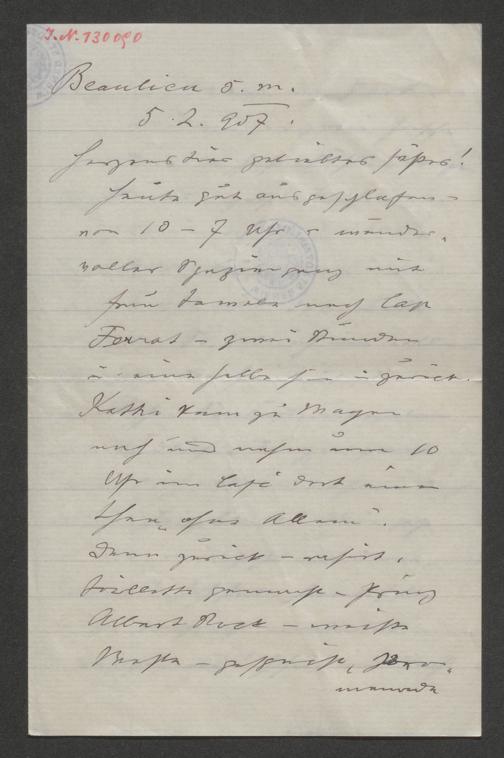 J.N. 130090
Beaulieu s. m.
5. 2. 907.
Herzens dies geliebtes süsses!
Heute gut ausgeschlafen –
von 10 – 7 Uhr – wunder-
voller Spaziergang mit
Frau nach Cap
Ferrat – zwei Stunden
u. eine halbe hin u. zurück.
Kathi kam zu Wagen
nach und nahm um 10
Uhr im Café dort einen
Thee, ohne Alkem.
Dann zurück – rasirt,
Toilette gemacht – Prinz
Albert Rock – weisse
Weste – gespeist,